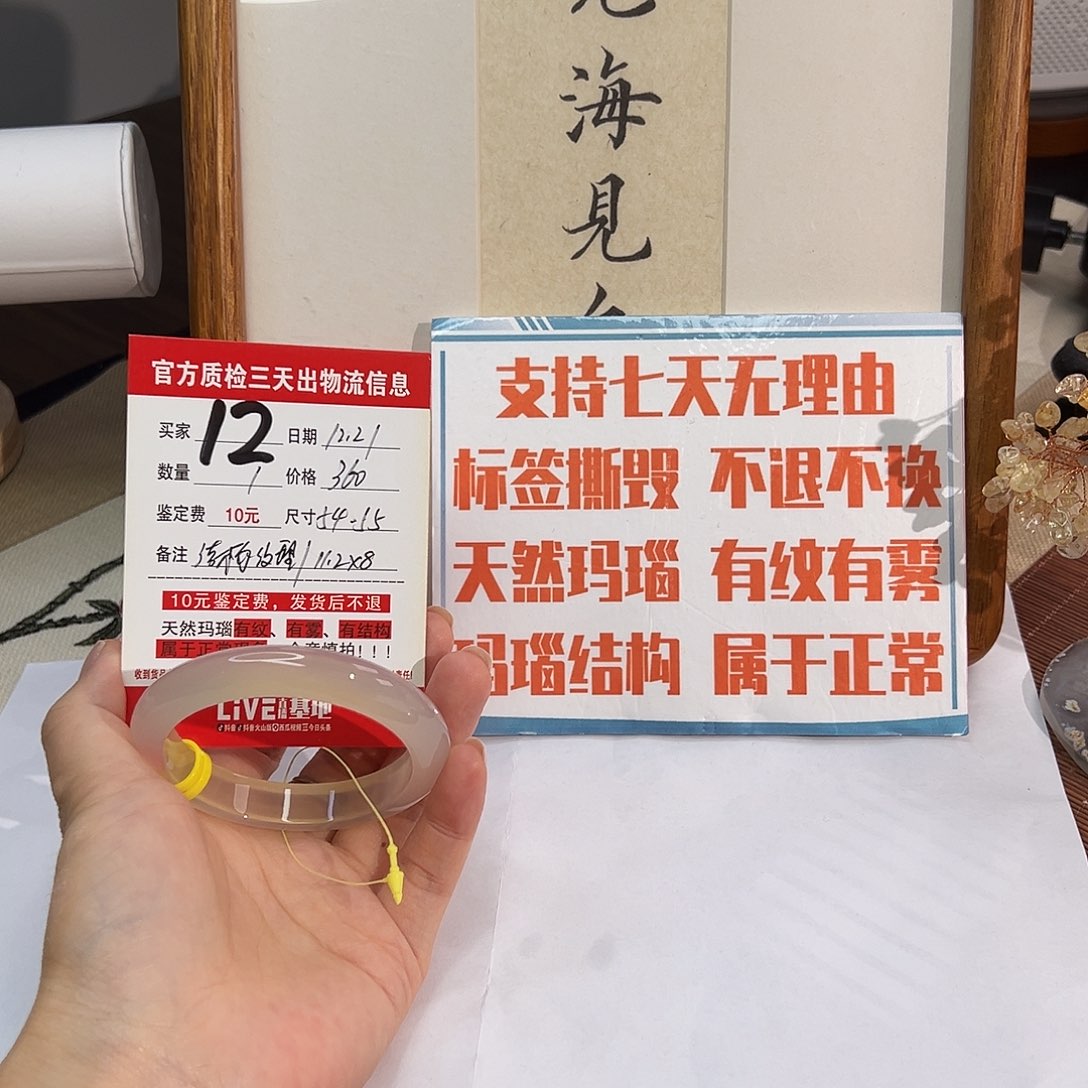 海
見
官方质检三天出物流信息
买家 12 日期 12.21
数量 1 价格 360
鉴定费 10元 尺寸 54-55
备注 结构纹理/11.2x8
10元鉴定费，发货后不退
天然玛瑙有纹、有雾、有结构
属于正常 慎拍!!!
收到货
LiVE 基地
抖音 抖音火山版 西瓜视频 今日头条
支持七天无理由
标签撕毁 不退不换
天然玛瑙 有纹有雾
玛瑙结构 属于正常